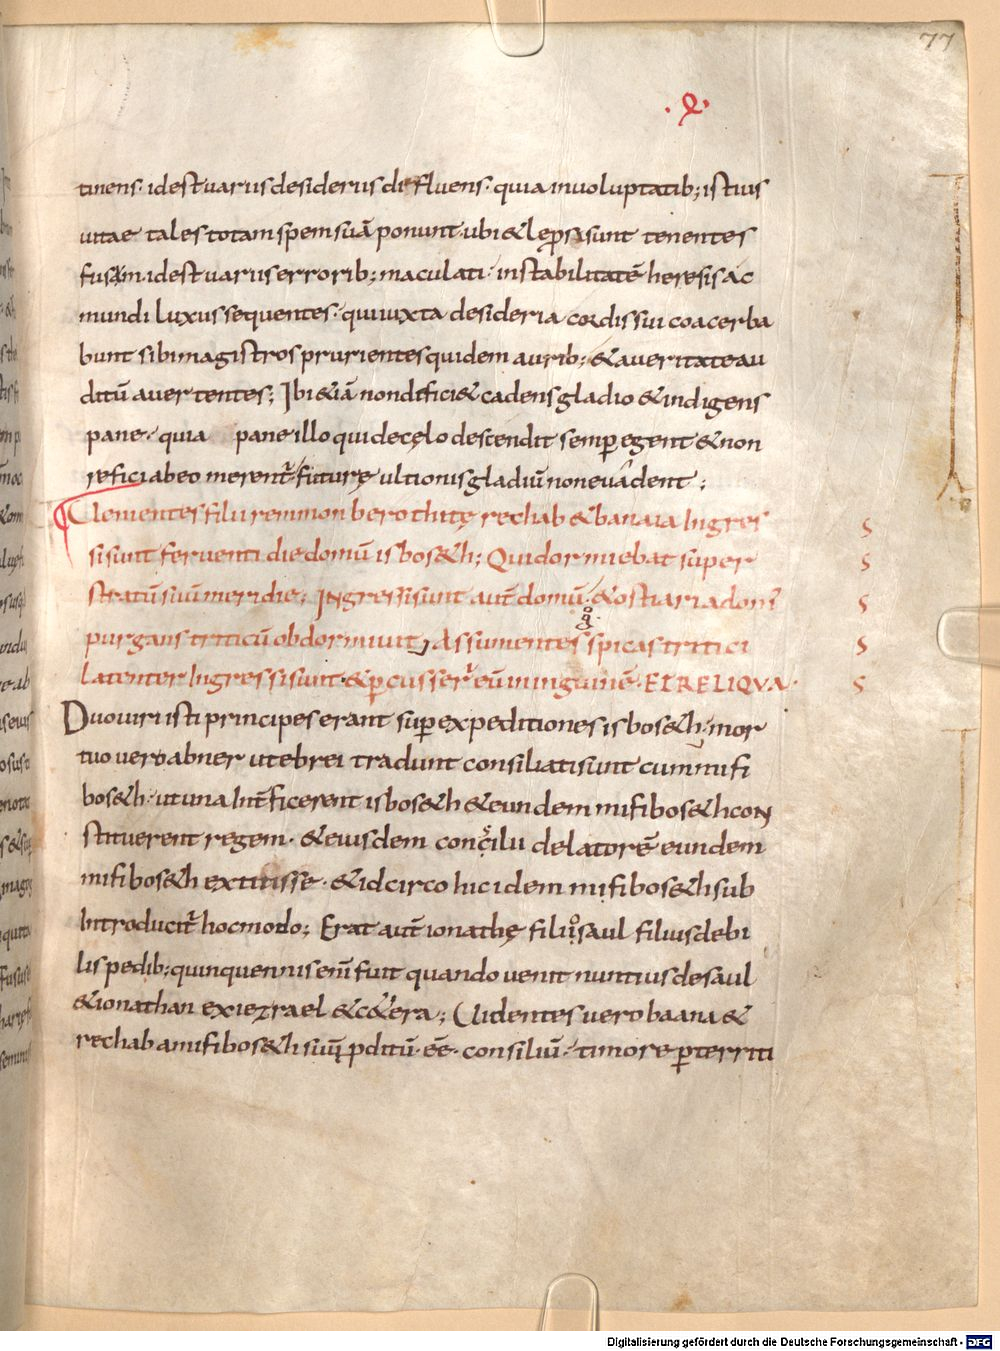 77
·X·
tinens· idest uariis desideriis diffluens· quia in uoluptatib; istius
uitae tales totam spem suā ponunt· ubi & leprosi sunt tenentes
fusum· idest uariis errorib; maculati· instabilitatē heresis ac
mundi luxus sequentes· qui iuxta desideria cordis sui coacerba
bunt sibi magistros prurientes quidem aurib; & a ueritate au
ditū auertentes; Ibi &iā non defici& cadens gladio & indigens
pane· quia pane illo qui de cęlo descendit semper egent & non
refici ab eo merent̄· futurę ultionis gladiū non euadent;
Uenientes filii remmon berothitę rechab & banaia Ingres
si sunt feruenti die domū isbos&h; Qui dormiebat super
stratū suū meridie; Ingressi sunt aut̄ domū· & ostiaria dom'
purgans triticū obdormiuit; Assumentes spicas tritici
latenter Ingressi sunt· & ꝑcusser̄ eū in inguinē· ET RELIQVA·
s
s
s
s
s
Duo uiri isti principes erant super expeditiones isbos&h· mor
tuo uero abner ut ebrei tradunt consiliati sunt cum mifi
bos&h· ut una Int̄ficerent isbos&h & eundem mifibos&h con
stituerent regem· & eiusdem concilii delatorē eundem
mifibos&h extitisse· & idcirco hic idem mifibos&h sub
Introducit̄ hoc modo; Erat aut̄ ionathę filio saul filius debi
lis pedib; quinquennis enī fuit quando uenit nuntius de saul
& ionathan ex iezrael & c&era; Uidentes uero baana &
rechab a mifibos&h suū ꝓditū· eē· consiliū· timore ꝑterriti
Digitalisierung gefördert durch die Deutsche Forschungsgemeinschaft - DFG